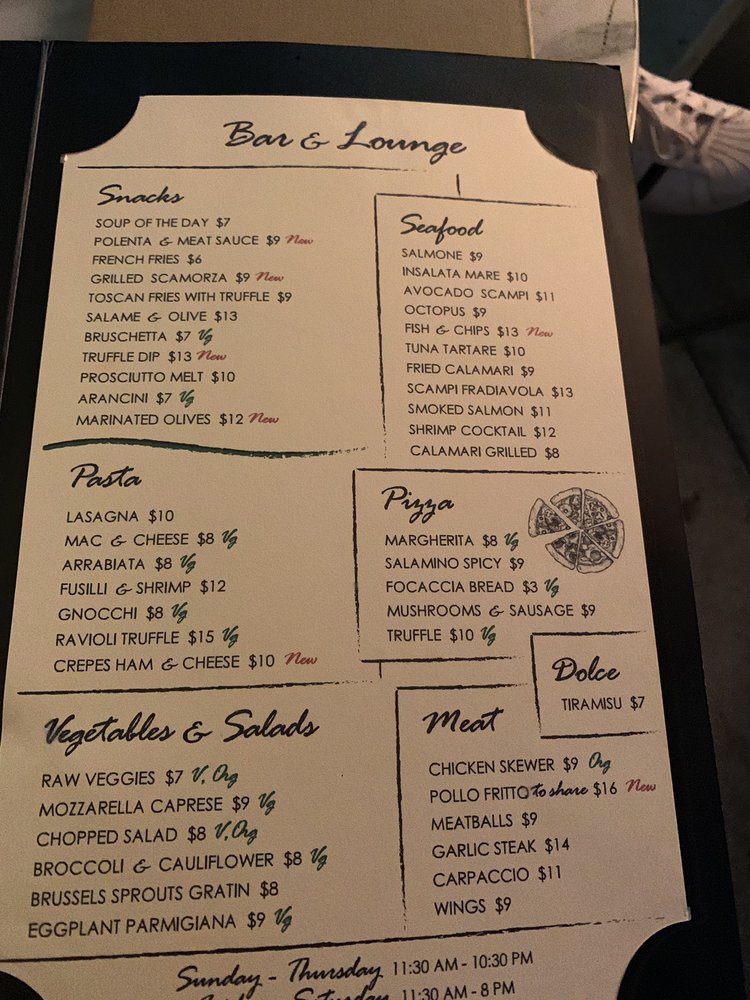 Bar & Lounge
Snacks
SOUP OF THE DAY $7
POLENTA & MEAT SAUCE $9 New
FRENCH FRIES $6
GRILLED SCAMORZA $9 New
TOSCAN FRIES WITH TRUFFLE $9
SALAME & OLIVE $13
BRUSCHETTA $7 Vg
TRUFFLE DIP $13 New
PROSCIUTTO MELT $10
ARANCINI $7 Vg
MARINATED OLIVES $12 New
Seafood
SALMONE $9
INSALATA MARE $10
AVOCADO SCAMPI $11
OCTOPUS $9
FISH & CHIPS $13 New
TUNA TARTARE $10
FRIED CALAMARI $9
SCAMPI FRADIAVOLA $13
SMOKED SALMON $11
SHRIMP COCKTAIL $12
CALAMARI GRILLED $8
Pasta
LASAGNA $10
MAC & CHEESE $8 Vg
ARRABIATA $8 Vg
FUSILLI & SHRIMP $12
GNOCCHI $8 Vg
RAVIOLI TRUFFLE $15 Vg
CREPES HAM & CHEESE $10 New
Pizza
MARGHERITA $8 Vg
SALAMINO SPICY $9
FOCACCIA BREAD $3 Vg
MUSHROOMS & SAUSAGE $9
TRUFFLE $10 Vg
Dolce
TIRAMISU $7
Vegetables & Salads
RAW VEGGIES $7 V, Org
MOZZARELLA CAPRESE $9 Vg
CHOPPED SALAD $8 V, Org
BROCCOLI & CAULIFLOWER $8 Vg
BRUSSELS SPROUTS GRATIN $8
EGGPLANT PARMIGIANA $9 Vg
Meat
CHICKEN SKEWER $9 Org
POLLO FRITTO to share $16 New
MEATBALLS $9
GARLIC STEAK $14
CARPACCIO $11
WINGS $9
Sunday - Thursday 11:30 AM - 10:30 PM
Saturday 11:30 AM - 8 PM